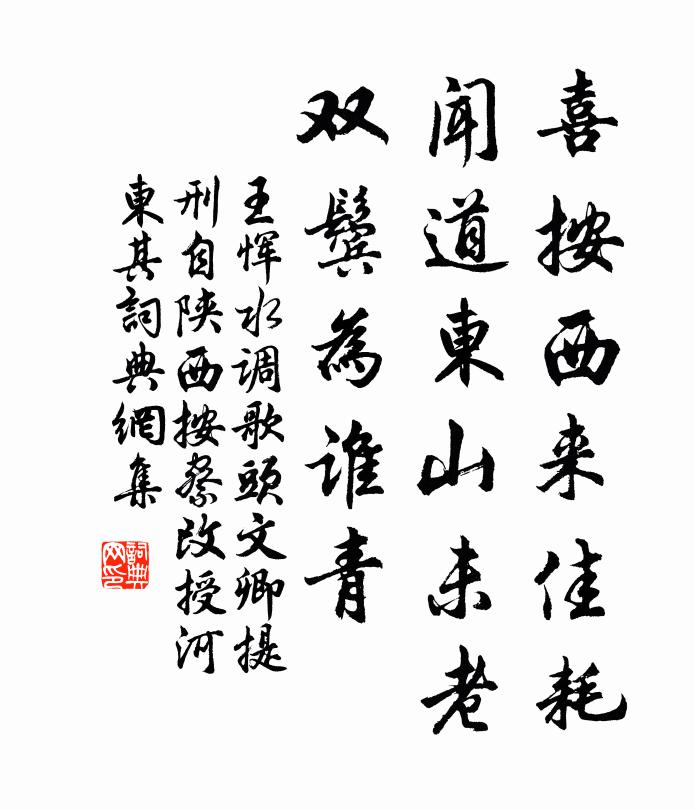 喜按西来佳耗
闻道東山未老
双鬓為谁青
王恽水调歌頭文卿提
刑自陕西按察改授河
東其詞典網集
詞典網印